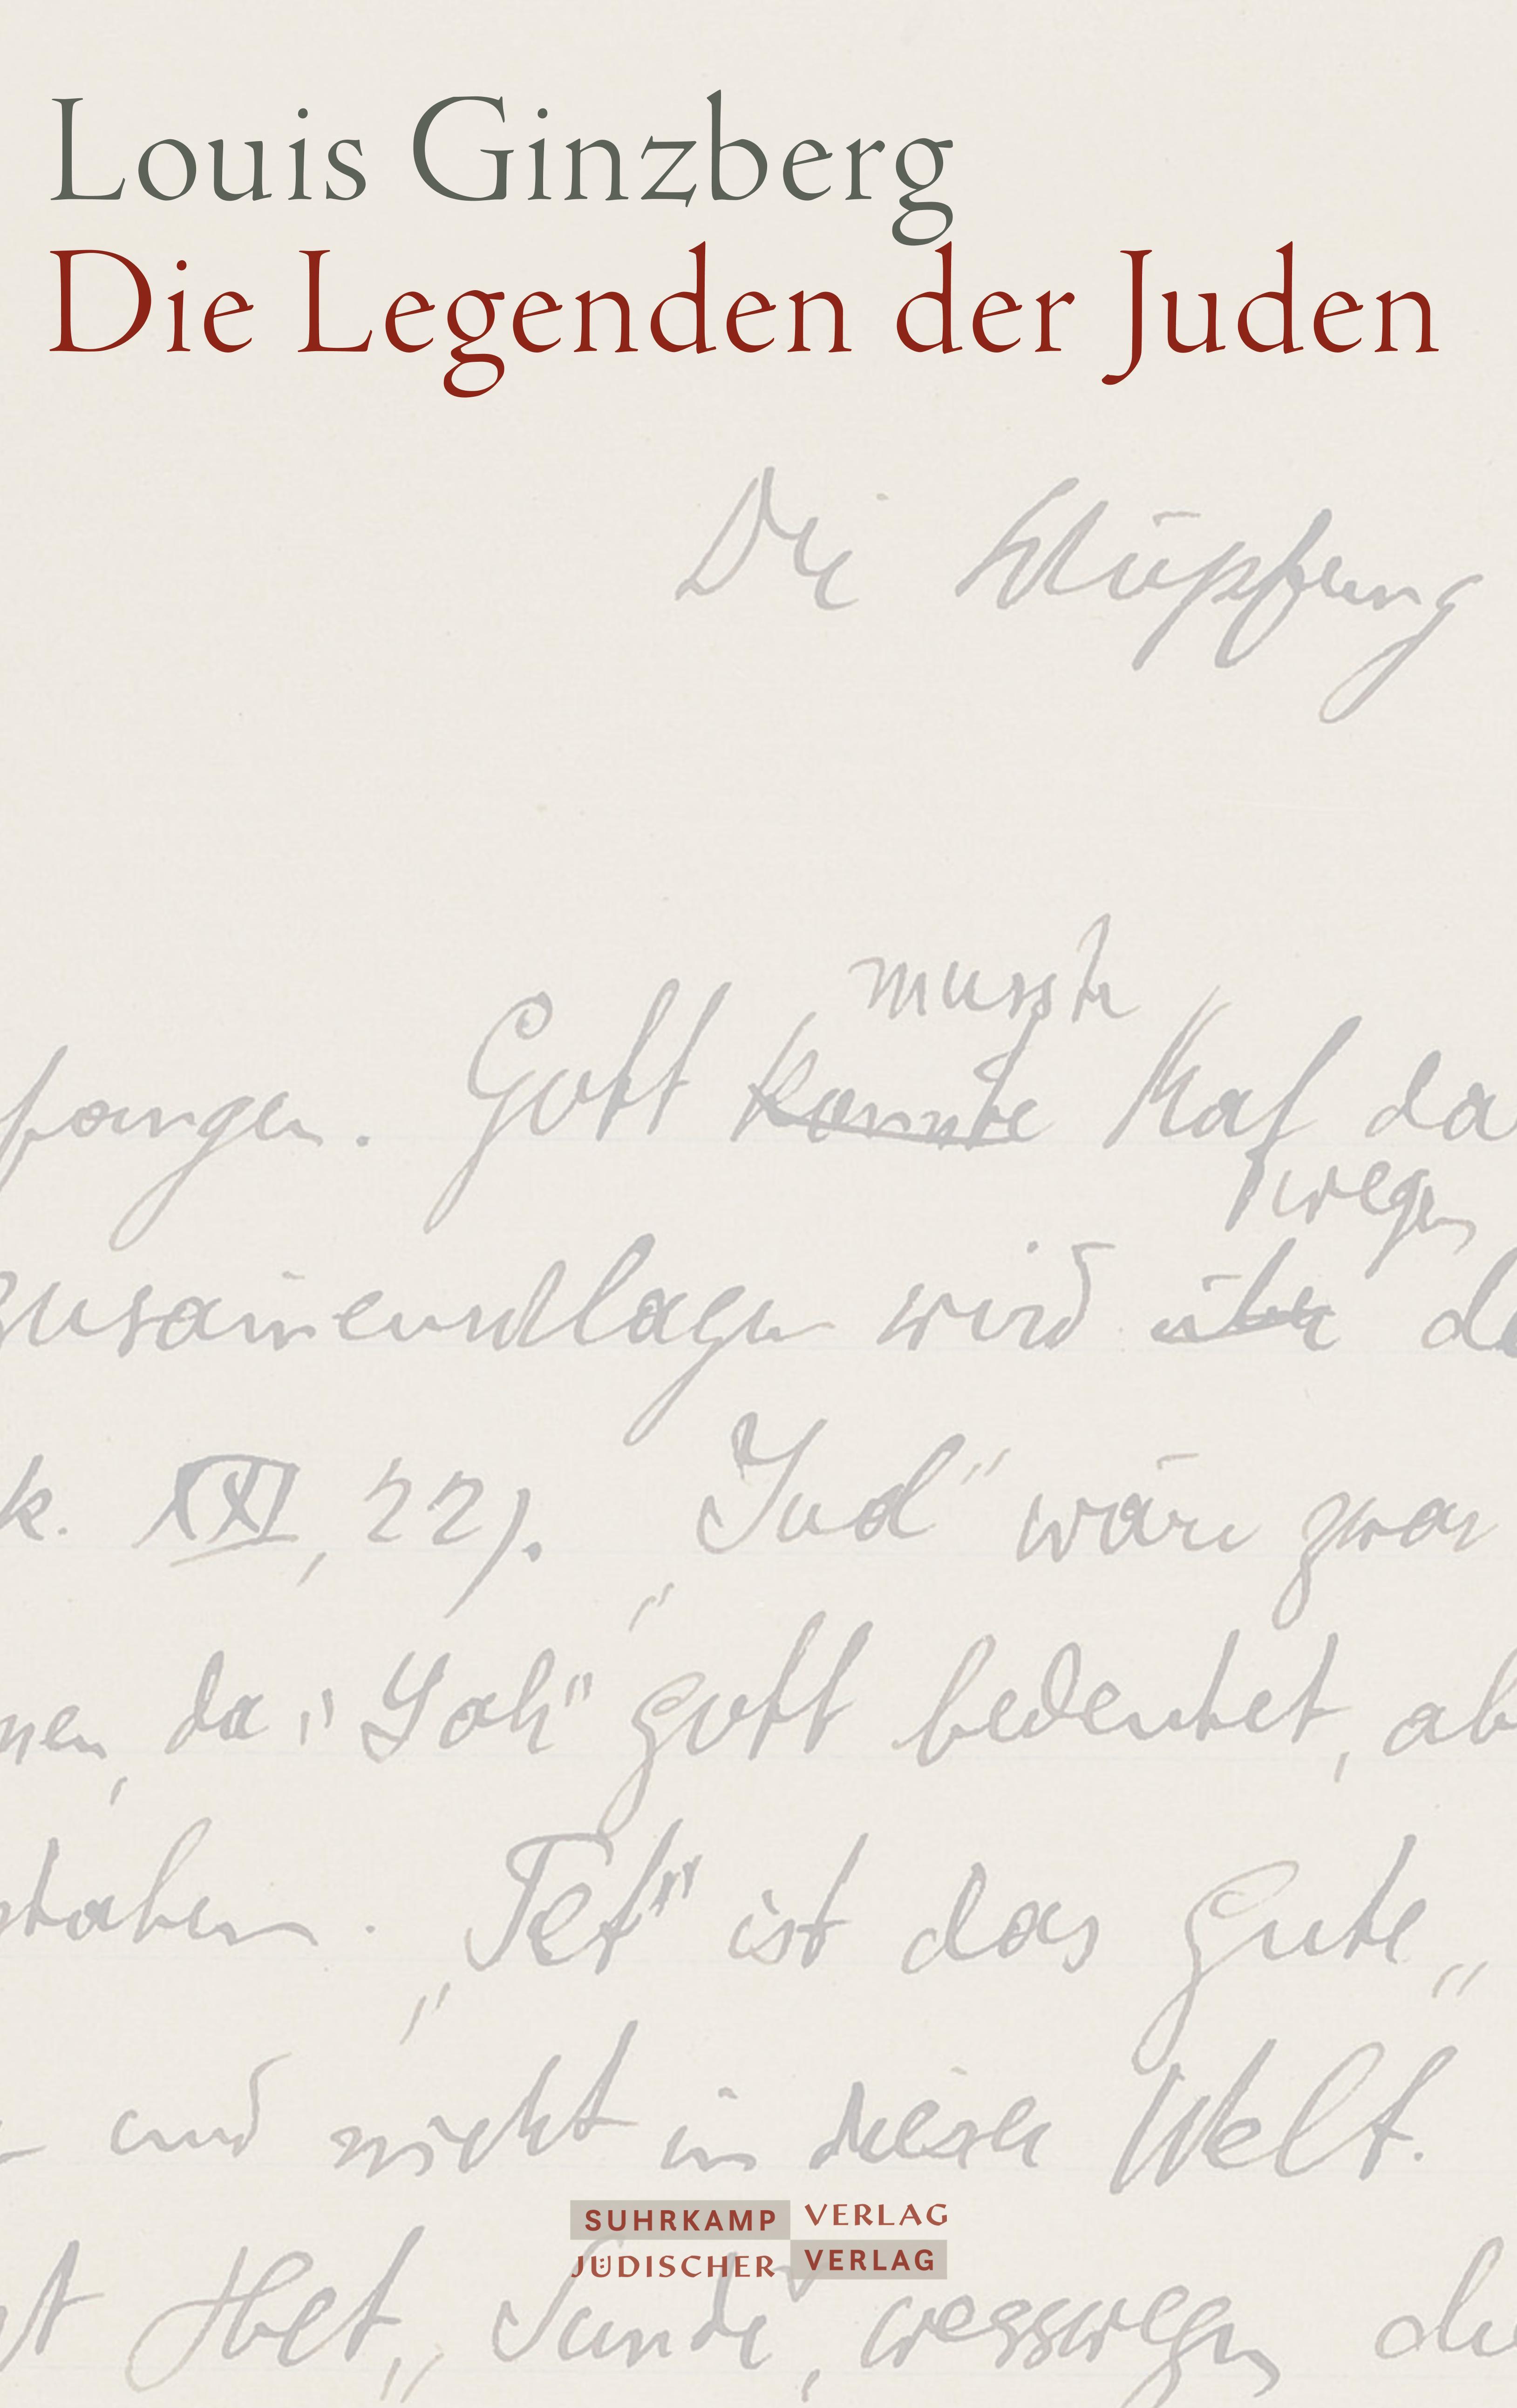 Louis Ginzberg
Die Legenden der Juden
Die Schöpfung
musste
fangen. Gott konnte Kaf da
wegen
zusammenschlagen wird über de
k. XXI, 22). „Jud“ wäre zwar
nen, da „Yah“ Gott bedeutet, ab
staben. „Tet“ ist das Gute „
und nicht in dieser Welt.
st Het „Sünde“, wesswegen die
SUHRKAMP VERLAG
JÜDISCHER VERLAG